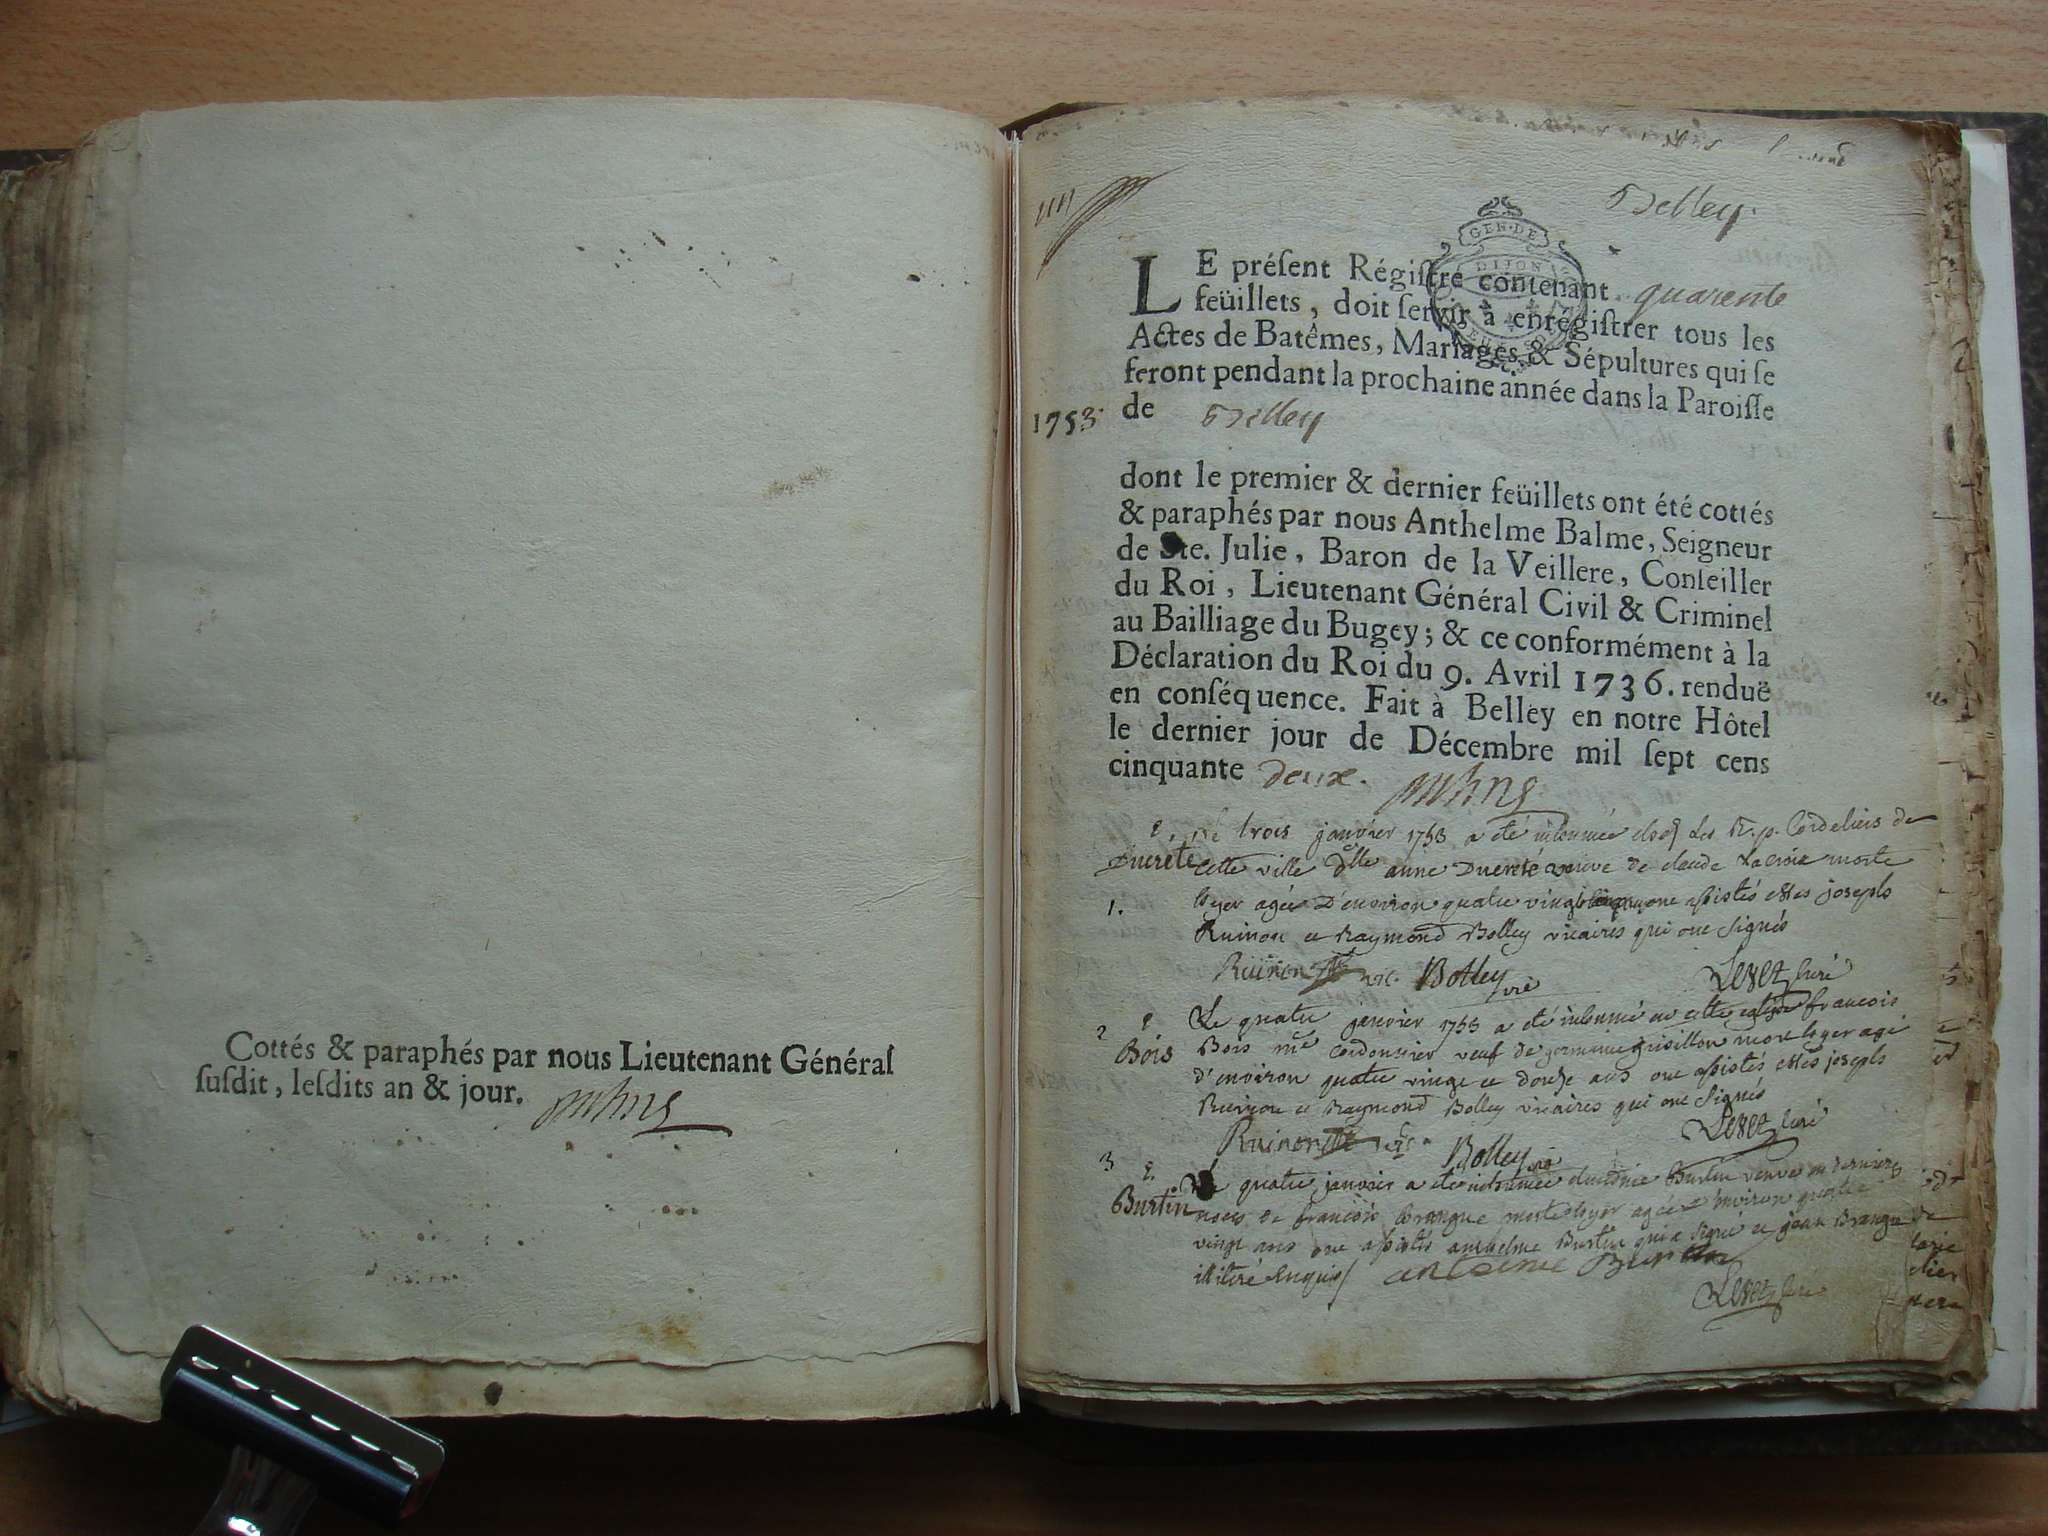 Cottés & paraphés par nous Lieutenant Général
susdit, lesdits an & jour.
Belley.
GEN·DE
DIJON
LE présent Régistre contenant quarente
feüillets, doit servir à enrégistrer tous les
Actes de Batêmes, Mariages & Sépultures qui se
feront pendant la prochaine année dans la Paroisse
1753. de Belley
dont le premier & dernier feüillets ont été cottés
& paraphés par nous Anthelme Balme, Seigneur
de Ste. Julie, Baron de la Veillere, Conseiller
du Roi, Lieutenant Général Civil & Criminel
au Bailliage du Bugey; & ce conformément à la
Déclaration du Roi du 9. Avril 1736. renduë
en conséquence. Fait à Belley en notre Hôtel
le dernier jour de Décembre mil sept cens
cinquante deux.
Le trois janvier 1753 a été inhumée Les R. p. Cordeliers de
Ducrete cette ville dlle anne Ducreté veuve de claude Lacroix morte
1. hyer agée D'environ quatre vingt assistés joseph
Ruinon et Raymond Bolley vicaires qui ont signés
Ruinon vic. Bolley vre Levet curé
2 Le quatre janvier 1753 a été inhumé en cette eglise francois
Bois Bois me Cordonnier veuf de germaine grisillon mort hyer agé
d'environ quatre vingt et douze ans ont assistés joseph
Ruinon et Raymond Bolley vicaires qui ont signés
Ruinon vic. Bolley vre Levet curé
3 Le quatre janvier a été inhumée Burtin veuve en dernieres
Burtin noces de francois morte hyer agée environ quatre
vingt ans ont assistés anthelme Burtin qui a signé et jean Brangue
illiteré Enquis Burtin
Levet curé